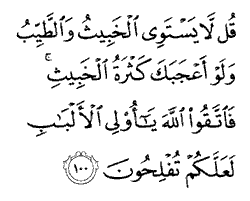 قُل لَّا يَسْتَوِى ٱلْخَبِيثُ وَٱلطَّيِّبُ
وَلَوْ أَعْجَبَكَ كَثْرَةُ ٱلْخَبِيثِ ۚ
فَٱتَّقُوا۟ ٱللَّهَ يَـٰٓأُو۟لِى ٱلْأَلْبَـٰبِ
لَعَلَّكُمْ تُفْلِحُونَ ١٠٠